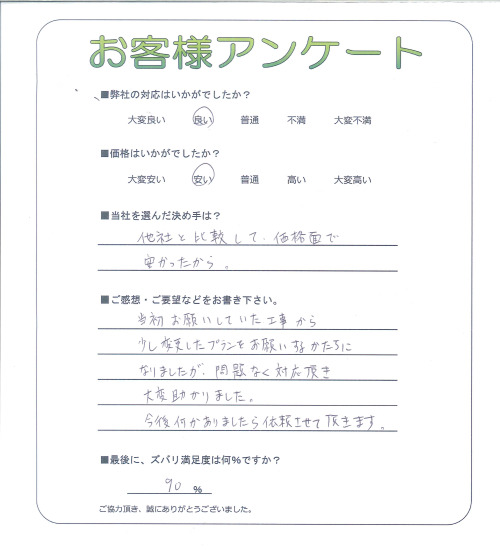 お客様アンケート
■弊社の対応はいかがでしたか？
大変良い 良い 普通 不満 大変不満
■価格はいかがでしたか？
大変安い 安い 普通 高い 大変高い
■当社を選んだ決め手は？
他社と比較して、価格面で
安かったから。
■ご感想・ご要望などをお書き下さい。
当初お願いしていた工事から
少し変更したプランをお願いするかたちに
なりましたが、問題なく対応頂き
大変助かりました。
今後何かありましたら依頼させて頂きます。
■最後に、ズバリ満足度は何%ですか？
90 %
ご協力頂き、誠にありがとうございました。